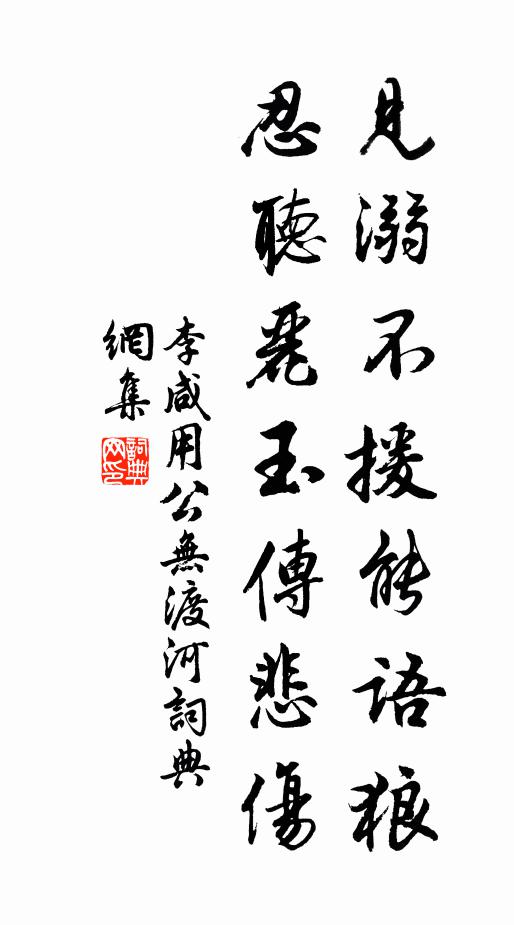 見溺不援能語狼
忍聽麗玉傳悲傷
李咸用公無渡河詞典
網集
詞典網印